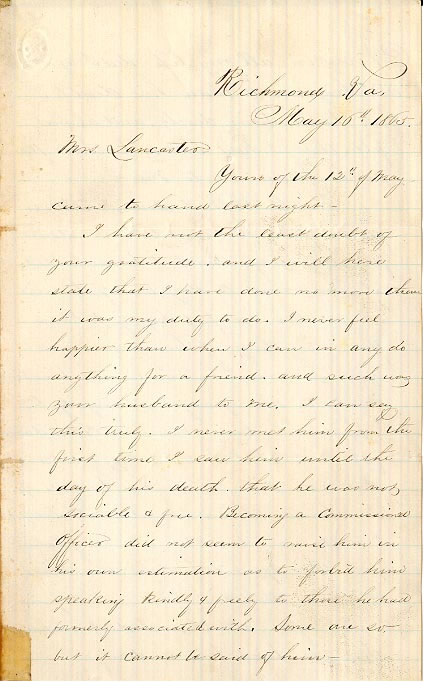 Richmond, Va,
May 16th 1865.
Mrs. Lancaster
Yours of the 12th of May
came to hand last night -
I have not the least doubt of
your gratitude. and I will here
state that I have done no more than
it was my duty to do. I never feel
happier than when I can in any do
anything for a friend. and such was
your husband to me. I can say
this truly. I never met him from the
first time I saw him until the
day of his death. that he was not
sociable & free. Becoming a Commissioned
Officer did not seem to raise him in
his own estimation as to forbid him
speaking kindly & freely to those he had
formerly associated with. Some are so.
but it cannot be said of him -